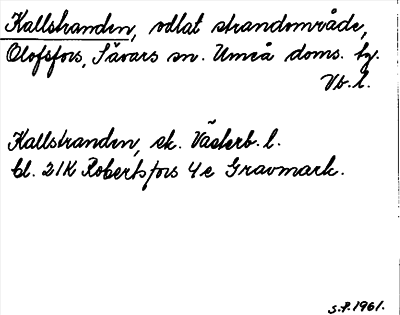 Kallstranden, odlat strandområde,
Olofsfors, Sävars sn. Umeå doms. hg.
Vb. l.
Kallstranden, ek. Västerb. l.
bl. 21K Robertsfors 4e Gravmark.
S.P. 1961.